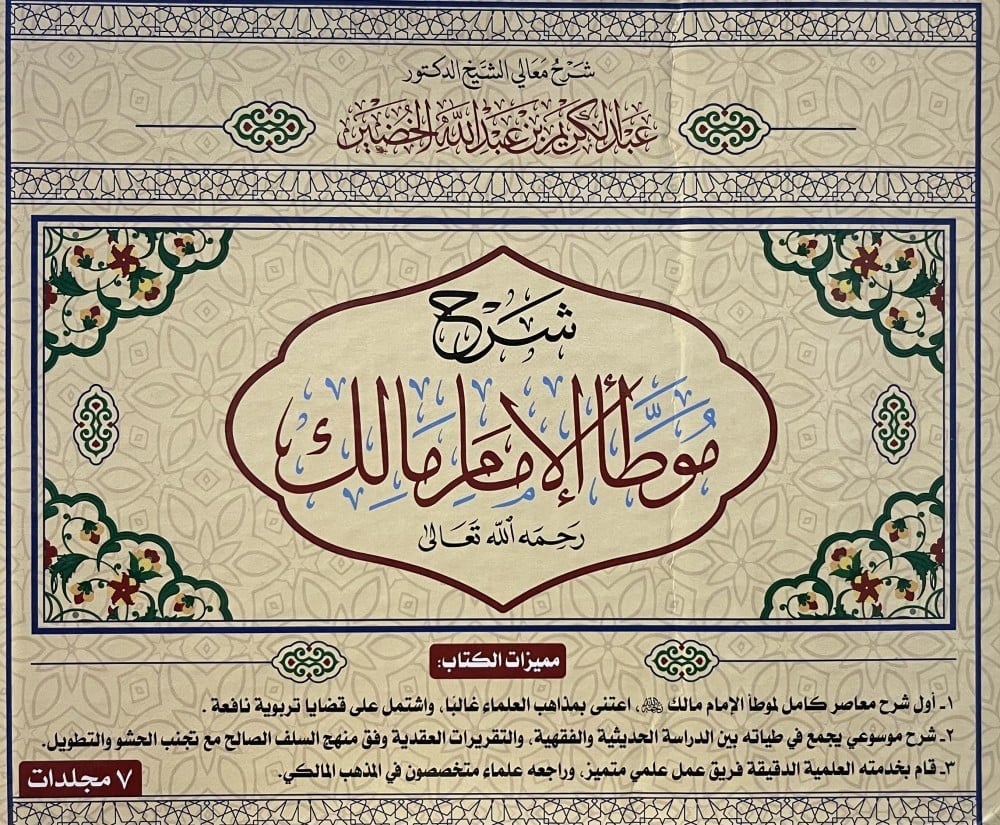 شَرْحُ مَعَالِي الشَّيْخِ الدكتور
عَبْدِ الْكَرِيْمِ بْنِ عَبْدِ اللَّهِ الْخُضَيْرِ
شَرْح
مُوَطَّأ الإِمَامِ مَالِك
رَحِمَه الله تَعَالى
مميزات الكتاب:
١ـ أول شرح معاصر كامل لموطأ الإمام مالك ﷺ، اعتنى بمذاهب العلماء غالبًا، واشتمل على قضايا تربوية نافعة .
٢ـ شرح موسوعي يجمع في طياته بين الدراسة الحديثية والفقهية، والتقريرات العقدية وفق منهج السلف الصالح مع تجنب الحشو والتطويل.
٣ـ قام بخدمته العلمية الدقيقة فريق عمل علمي متميز، وراجعه علماء متخصصون في المذهب المالكي.
٧ مجلدات